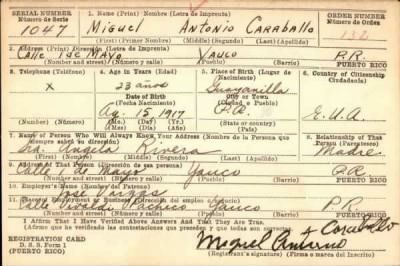 SERIAL NUMBER
Número de Serie
1. NAME (Print) Nombre (Letra de Imprenta)
ORDER NUMBER
Número de Orden
1047
MIGUEL ANTONIO CARABALLO
(First) (Primer Nombre) (Middle) (Segundo) (Last) (Apellido)
2. Address (Print) Dirección (Letra de Imprenta)
CALLE 1 DE MAYO YAUCO P.R.
PUERTO RICO
3. Telephone (Teléfono)
4. Age in Years (Edad)
5. Place of Birth (Lugar de Nacimiento)
6. Country of Citizenship
Ciudadanía
X
23 años
Guayanilla
Date of Birth
(Fecha Nacimiento)
City or Town
(Ciudad o Pueblo)
Ag. 15, 1917
P.R.
E.U.A.
(Mo.) (Mes) (Day) (Día) (Yr.) (Año)
7. Name of Person Who Will Always Know Your Address (Nombre de la Persona que siempre sabrá su dirección)
8. Relationship of That Person (Parentesco)
Sra. Angela Rivera Madre
(First) (Nombre) (Middle) (Segundo) (Last) (Apellido)
9. Address of That Person (Dirección de esa persona)
Calle 1 de Mayo Yauco P.R.
PUERTO RICO
10. Employer's Name (Nombre del Patrono)
José Vargas
11. Place of Employment or Business (Dirección del empleo o negocio)
Pacheco Yauco P.R.
PUERTO RICO
I Affirm That I Have Verified Above Answers And That They Are True.
Afirmo que he verificado las contestaciones que preceden y que todas son correctas.
Miguel Antonio Caraballo
REGISTRATION CARD
D. S. S. Form 1
(PUERTO RICO)
(Registrant's signature) (Firma o marca del inscrito)